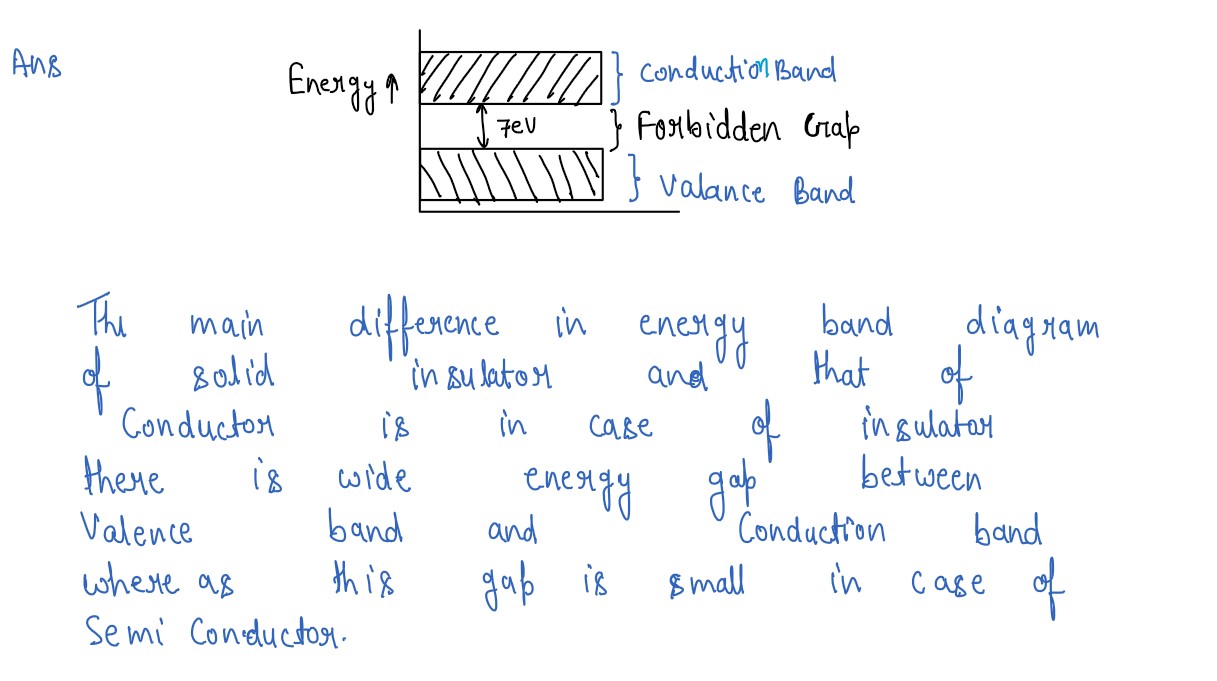 Ans
Energy ↑
} Conduction Band
7eV
} Forbidden Gap
} Valance Band
The main difference in energy band diagram
of solid insulator and that of
Conductor is in case of insulator
there is wide energy gap between
Valence band and Conduction band
where as this gap is small in case of
Semi Conductor.